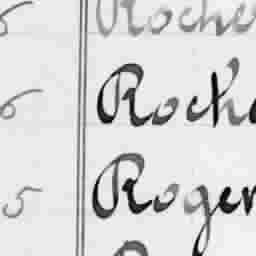 Roche
6 Roch
5 Roger